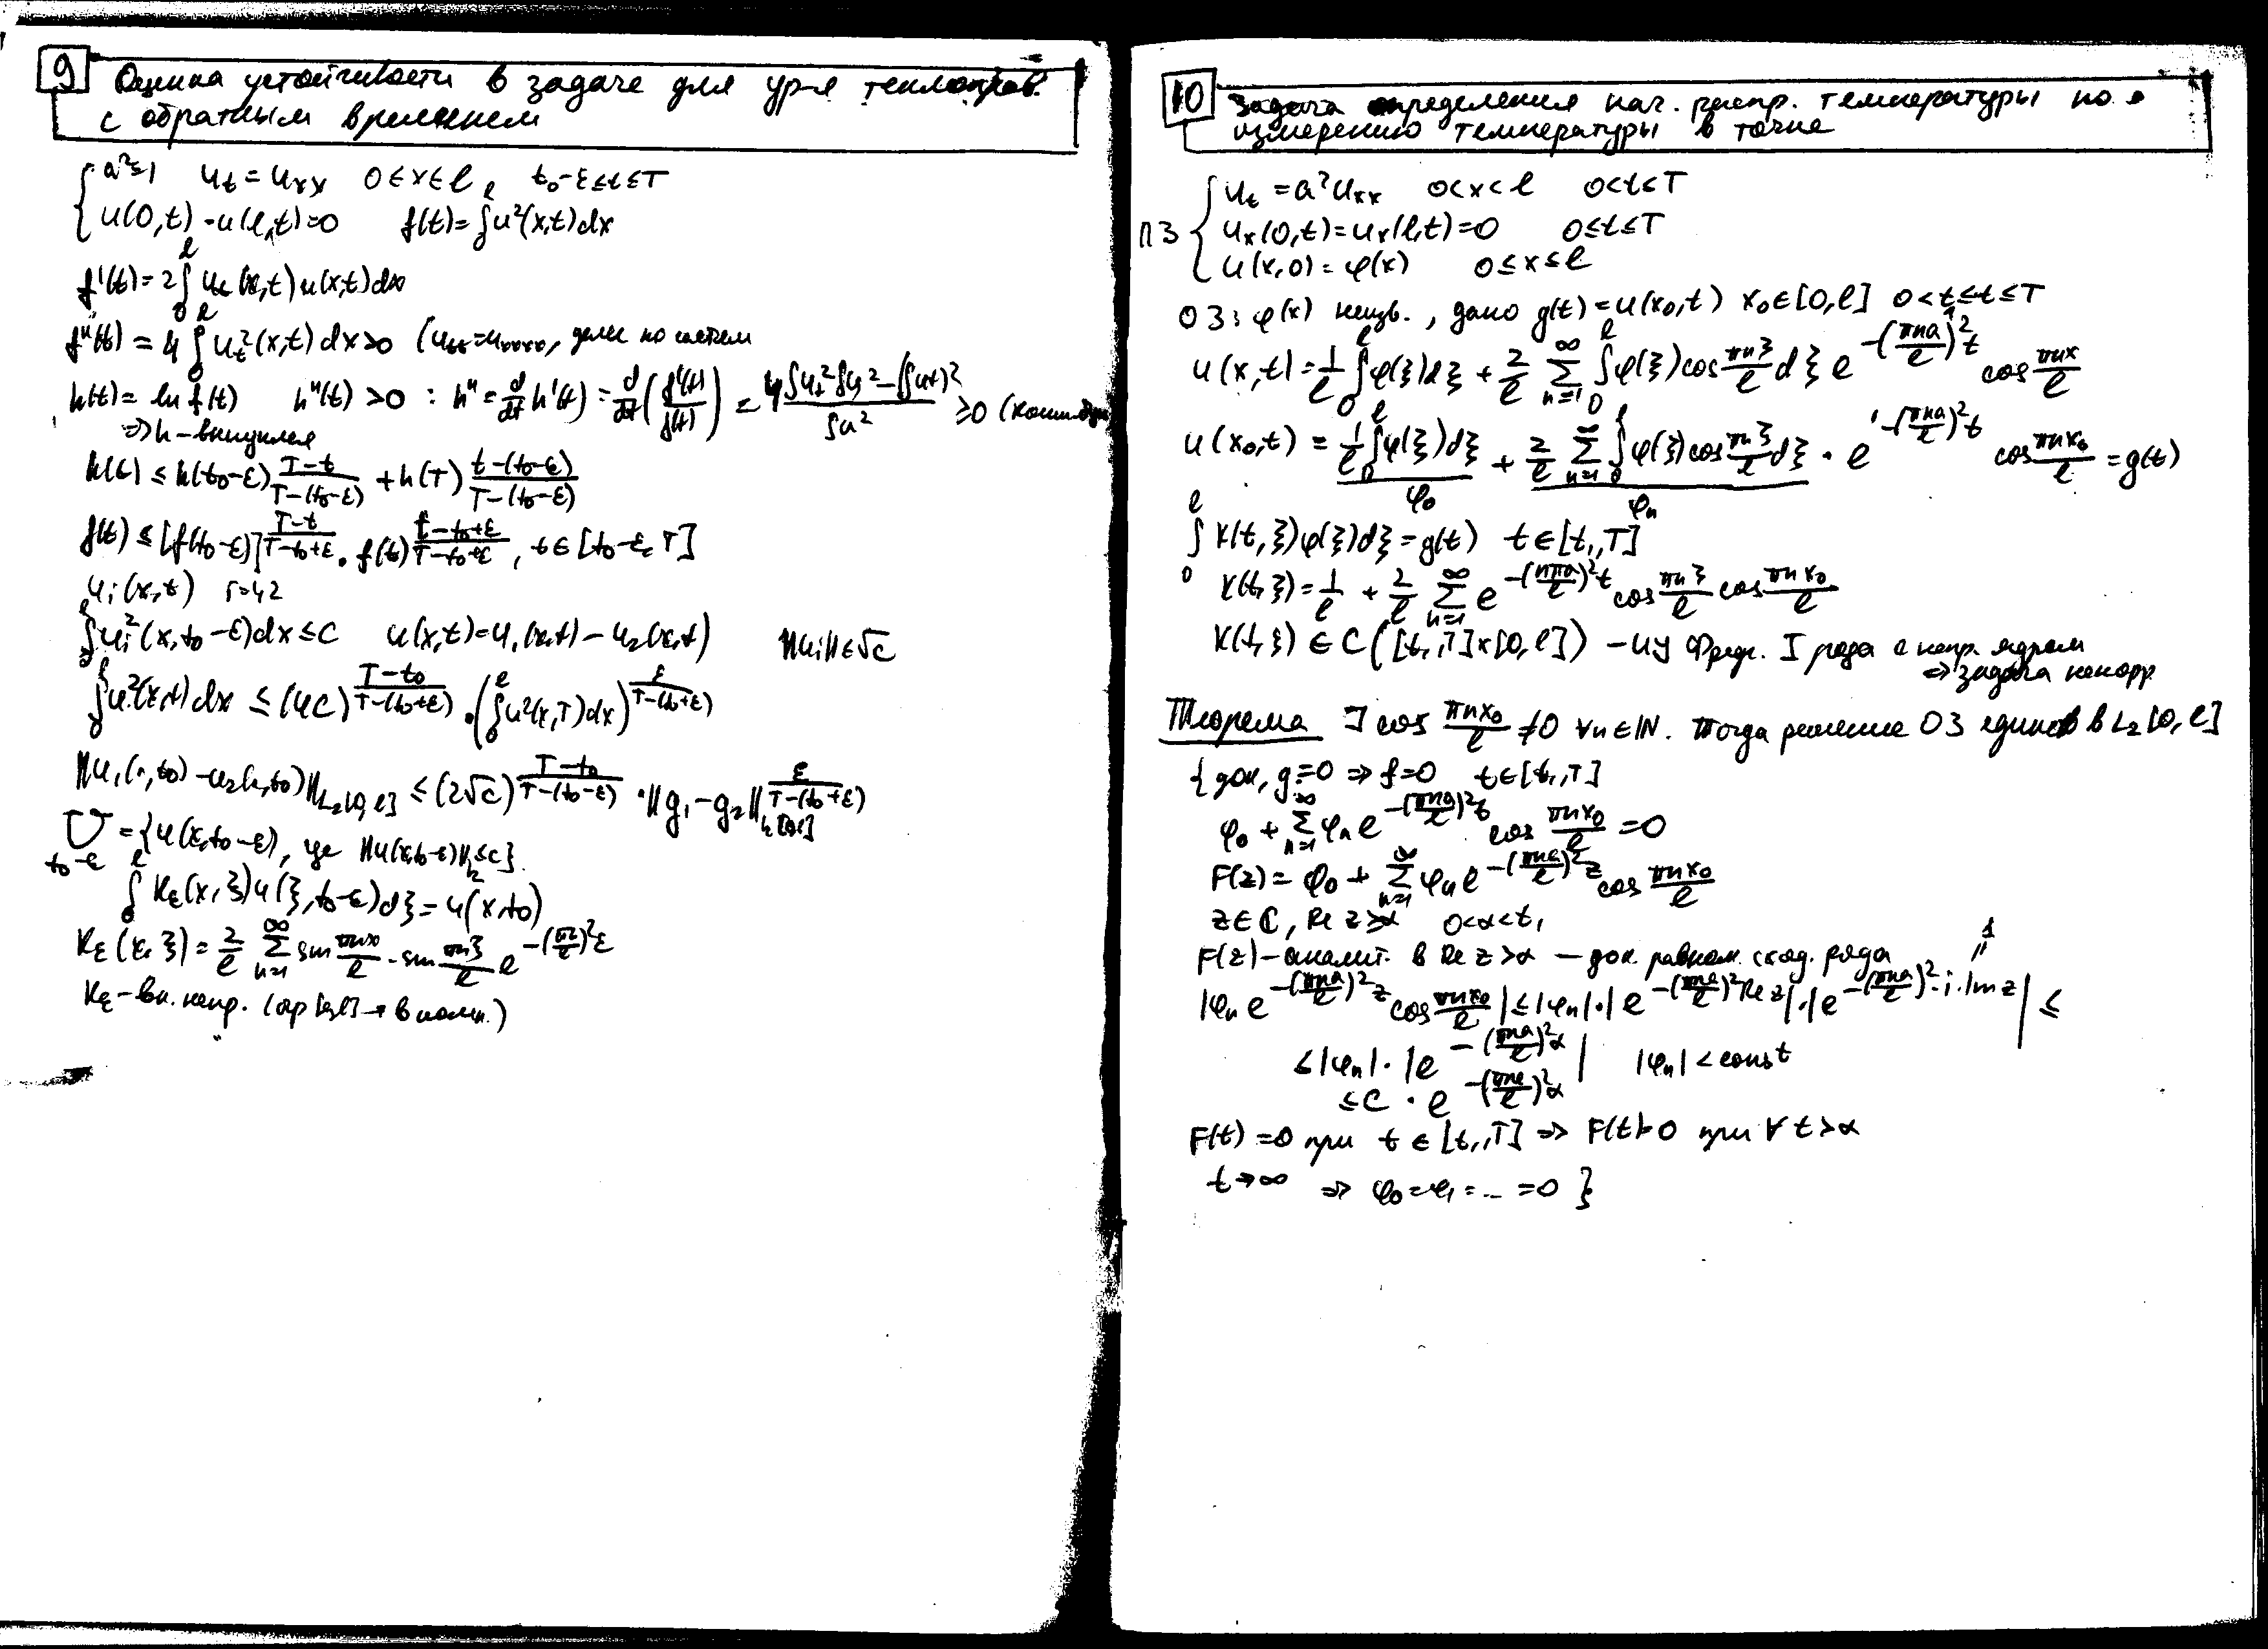 9 Оценка устойчивости в задаче для ур-я теплопров.
с обратным временем
a²=1 uₜ = uₓₓ 0≤x≤l, t₀-ε≤t≤T
u(0,t)=u(l,t)=0 f(t)=∫₀ˡu²(x,t)dx
f'(t)=2∫₀ˡ uₜ(x,t)u(x,t)dx
f''(t) = 4∫₀ˡ uₜ²(x,t)dx>0 (uₜₜ=uₓₓₓₓ, далее по частям
h(t)= ln f(t) h''(t) >0 : h''=d/dt h'(t) = d/dt (f'(t)/f(t)) = 4 (∫uₜ²∫u² - (∫uuₜ)²)/∫u² ≥0
⇒ h-выпуклая
h(t) ≤ h(t₀-ε) (T-t)/(T-(t₀-ε)) + h(T) (t-(t₀-ε))/(T-(t₀-ε))
f(t) ≤ [f(t₀-ε)]^((T-t)/(T-t₀+ε)) · f(t)^((t-t₀+ε)/(T-t₀+ε)), t∈[t₀-ε, T]
uᵢ(x,t) i=1,2
∫₀ˡuᵢ²(x,t₀-ε)dx≤C u(x,t)=u₁(x,t)-u₂(x,t) ||uᵢ||≤√C
∫₀ˡu²(x,t)dx ≤ (4C)^((T-t₀)/(T-(t₀+ε))) · (∫₀ˡu²(x,T)dx)^(ε/(T-(t₀+ε)))
||u₁(x,t₀)-u₂(x,t₀)||_L₂[0,l] ≤ (2√C)^((T-t₀)/(T-(t₀-ε))) · ||g₁-g₂||_L₂[0,l]^(ε/(T-(t₀+ε)))
U_(t₀-ε) = {u(x,t₀-ε), где ||u(x,t₀-ε)||_L₂≤C}
∫₀ˡ K_ε(x,ξ)u(ξ,t₀-ε)dξ = u(x,t₀)
K_ε(x,ξ) = 2/l ∑_(n=1)^∞ sin πnx/l · sin πnξ/l e^(-(πn/l)²ε)
K_ε-вп. непр.
10 Задача определения нач. распр. температуры по
измерению температуры в точке
ПЗ { uₜ = a²uₓₓ 0<x<l 0<t≤T
uₓ(0,t)=uₓ(l,t)=0 0≤t≤T
u(x,0)=φ(x) 0≤x≤l
ОЗ: φ(x) неизв., дано g(t)=u(x₀,t) x₀∈[0,l] 0<t₁≤t≤T
u(x,t) = 1/l ∫₀ˡφ(ξ)dξ + 2/l ∑_(n=1)^∞ ∫₀ˡφ(ξ)cos πnξ/l dξ e^(-(πna/l)²t) cos πnx/l
u(x₀,t) = 1/l ∫₀ˡφ(ξ)dξ + 2/l ∑_(n=1)^∞ ∫₀ˡφ(ξ)cos πnξ/l dξ · e^(-(πna/l)²t) cos πnx₀/l = g(t)
φ₀ φₙ
∫₀ˡ K(t,ξ)φ(ξ)dξ=g(t) t∈[t₁,T]
K(t,ξ)= 1/l + 2/l ∑_(n=1)^∞ e^(-(nπa/l)²t) cos πnξ/l cos πnx₀/l
K(t,ξ) ∈ C([t₁,T]×[0,l]) – ИУ Фредг. I рода с непр. ядром
⇒ задача некорр.
Теорема ] cos πnx₀/l ≠0 ∀n∈ℕ. Тогда решение ОЗ единств в L₂[0,l]
{ док, g=0 ⇒ f=0 t∈[t₁,T]
φ₀ + ∑_(n=1)^∞ φₙe^(-(πna/l)²t) cos πnx₀/l =0
F(z) = φ₀ + ∑_(n=1)^∞ φₙe^(-(πna/l)²z) cos πnx₀/l
z∈ℂ, Re z≥α 0<α<t₁
F(z)-аналит. в Re z>α – док. равном. сход. ряда
|φₙ e^(-(πna/l)²z) cos πnx₀/l| ≤|φₙ|·|e^(-(πna/l)²Re z)|·|e^(-(πna/l)²·i·Im z)| ≤
1
≤|φₙ|·|e^(-(πna/l)²α)| |φₙ|<const
≤C · e^(-(πna/l)²α)
F(t)=0 при t∈[t₁,T] ⇒ F(t)=0 при ∀t>α
t→∞ ⇒ φ₀=φ₁=...=0 }